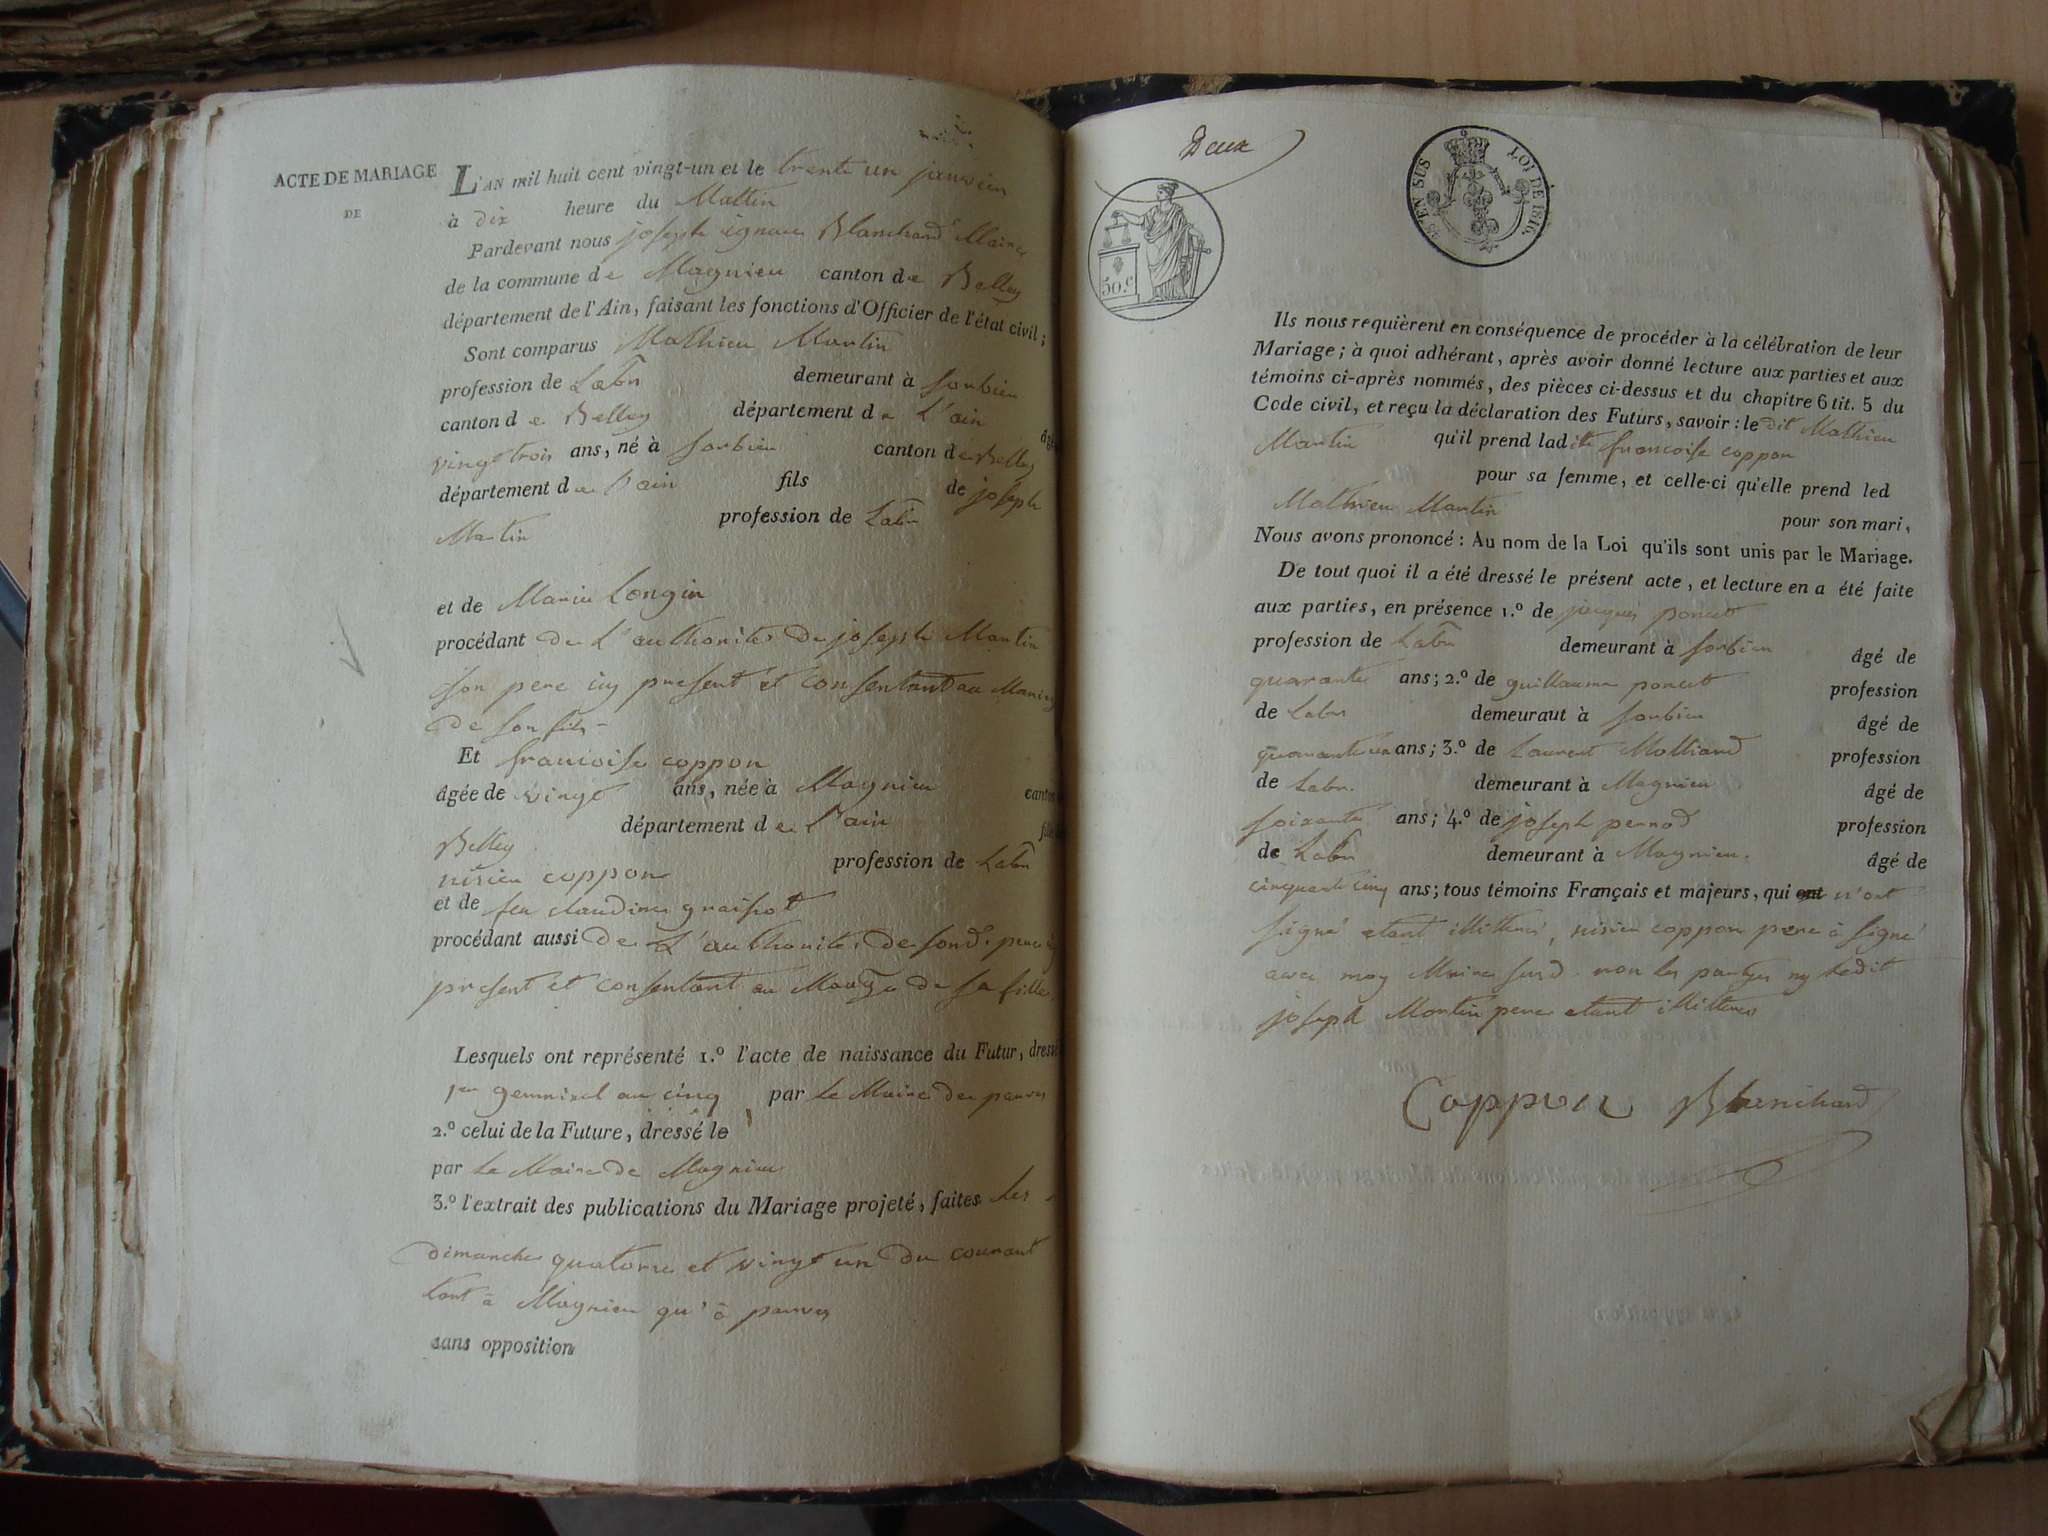 ACTE DE MARIAGE
DE
L'AN mil huit cent vingt-un et le trente un janvier
à dix heure du Mattin
Pardevant nous joseph ignace Blanchard Maire
de la commune de Magnieu canton de Belley
département de l'Ain, faisant les fonctions d'Officier de l'état civil;
Sont comparus Mathieu Martin
profession de Labr demeurant à Sorbieu
canton de Belley département de L'ain
vingt trois ans, né à Sorbieu canton de Belley
département de L'ain fils de joseph
Martin profession de Labr
et de Marie Longin
procédant de L'authorité de joseph Martin
son pere icy present et consentant au
de son fils
Et francoise coppon
âgée de vingt ans, née à Magnieu
Belley département de L'ain
coppon profession de Labr
et de feu claudine
procédant aussi de L'authorité de sond. pere
present et consentant au de sa fille
Lesquels ont représenté 1.º l'acte de naissance du Futur,
1er germinal an cinq par le Maire de parves
2.º celui de la Future, dressé le
par le Maire de Magnieu
3.º l'extrait des publications du Mariage projeté, faites les
dimanche quatorze et vingt un du courant
tant à Magnieu qu'à parves
sans opposition
Deux
50.c
EN SUS LOI DE 1816.
Ils nous requièrent en conséquence de procéder à la célébration de leur
Mariage; à quoi adhérant, après avoir donné lecture aux parties et aux
témoins ci-après nommés, des pièces ci-dessus et du chapitre 6 tit. 5 du
Code civil, et reçu la déclaration des Futurs, savoir: le dit Mathieu
Martin qu'il prend ladite francoise coppon
pour sa femme, et celle-ci qu'elle prend led
Mathieu Martin pour son mari,
Nous avons prononcé: Au nom de la Loi qu'ils sont unis par le Mariage.
De tout quoi il a été dressé le présent acte, et lecture en a été faite
aux parties, en présence 1.º de jacques poncet
profession de Labr demeurant à Sorbieu âgé de
quarante ans; 2.º de guillaume poncet profession
de Labr demeuraut à Sorbieu âgé de
quarante un ans; 3.º de Laurent Molliard profession
de Labr. demeurant à Magnieu âgé de
soixante ans; 4.º de joseph pernod profession
de Labr demeurant à Magnieu. âgé de
cinquante cinq ans; tous témoins Français et majeurs, qui ont n'ont
signé etant illitteré, coppon pere à signé
avec moy Maire susd. non les partyes ny ledit
joseph Martin pere etant illitteres
Coppon Blanchard